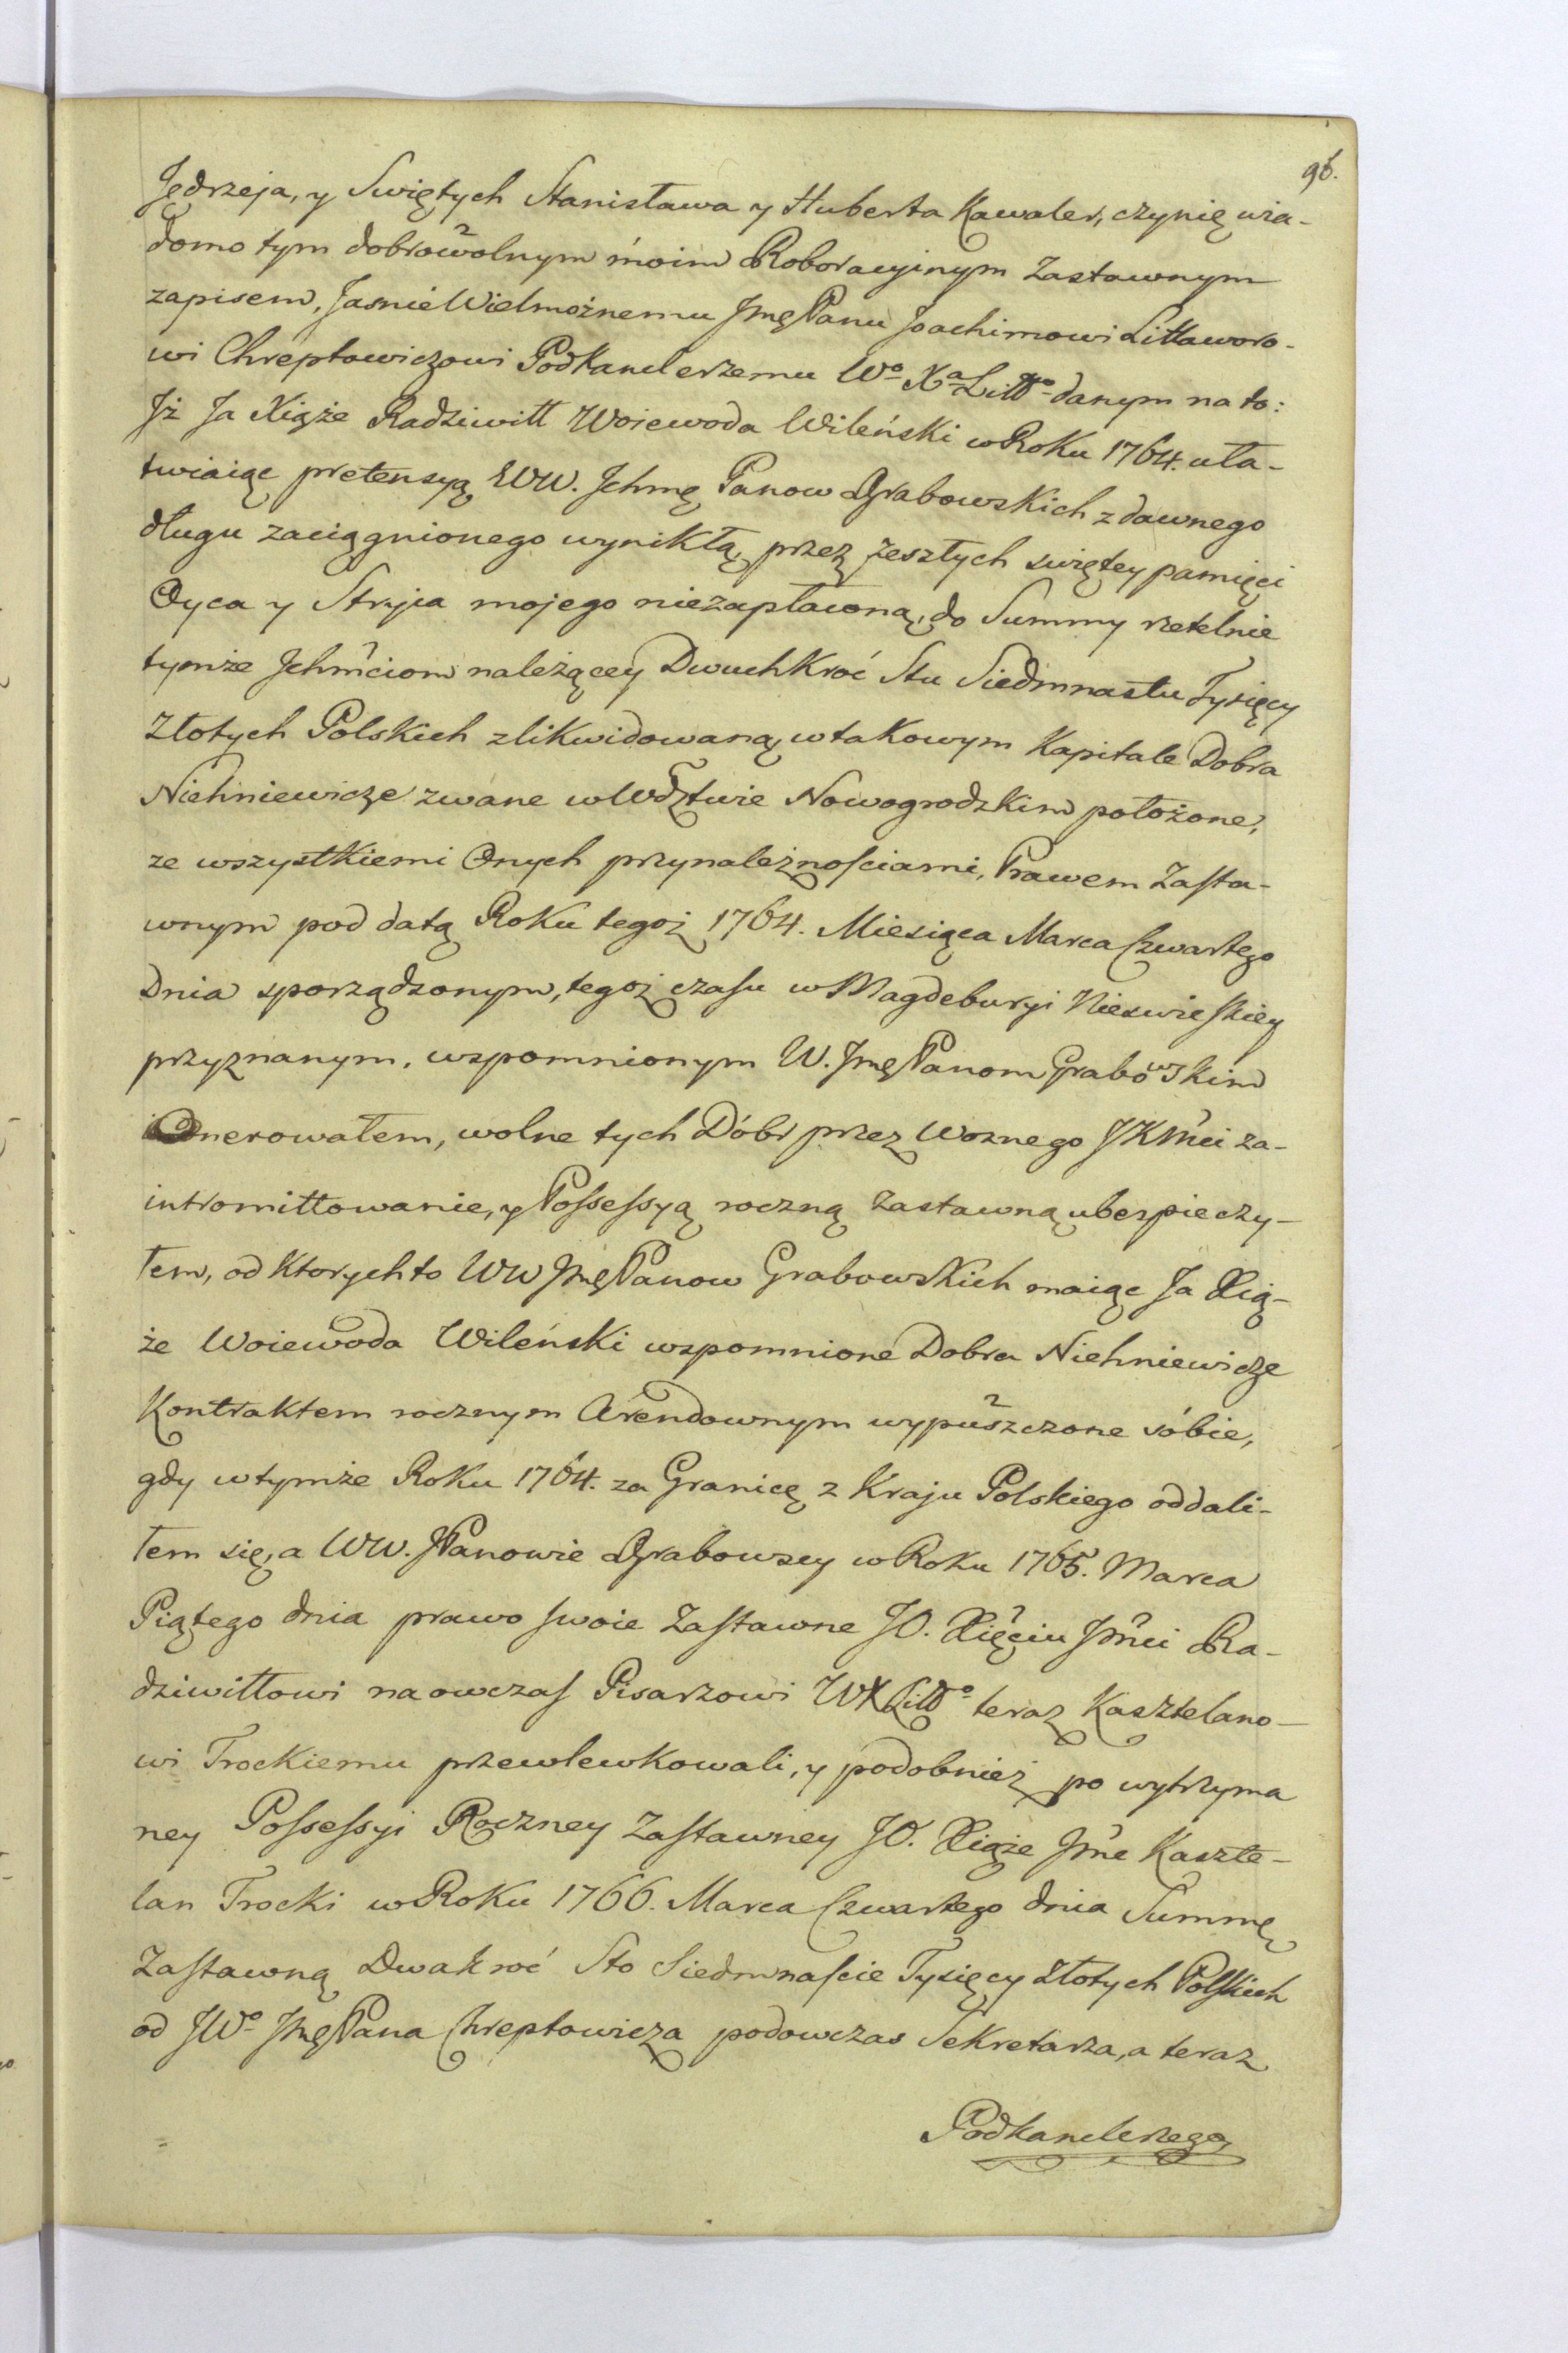 96.
Jędrzeja, y Swiętych Stanisława y Huberta Kawaler, czynię wia-
domo tym dobrowolnym moim Roboracyinym Zastawnym
zapisem, Jasnie Wielmożnemu Jmę Panu Joachimowi Littaworo-
wi Chreptowiczowi Podkanclerzemu Wo Xa Litto danym na to:
Jż Ja Xiąże Radziwiłł Woiewoda Wileński w Roku 1764. uła-
twiaiąc pretensyą WW. Jchmę Panow Grabowskich z dawnego
długu zaciągnionego wynikłą, przez zeszłych swiętey pamięci
Oyca y Stryia mojego niezapłaconą, do Summy rzetelnie
tymże Jchmciom należącey Dwuchkroć Stu Siedmnastu Tysięcy
Złotych Polskich zlikwidowaną, w takowym Kapitale Dobra
Niehniewicze zwane w Wdztwie Nowogrodzkim położone,
ze wszystkiemi Onych przynależnościami, Prawem Zasta-
wnym pod datą Roku tegoż 1764. Miesiąca Marca Czwartego
Dnia sporządzonym, tegoż czasu w Magdeburyi Nieswieskiey
przyznanym, wspomnionym W. Jmę Panom Grabowskim
Onerowałem, wolne tych Dóbr przez Woznego JKMci za-
intromittowanie, y Possessyą roczną zastawną ubezpieczy-
łem, od Ktorychto WW Jmę Panow Grabowskich maiąc Ja Xią-
że Woiewoda Wileński wspomnione Dobra Niehniewicze
Kontraktem rocznym Arendownym wypuszczone sobie,
gdy w tymże Roku 1764. za Granicę z Kraju Polskiego oddali-
łem się, a WW. JPanowie Grabowscy w Roku 1765. Marca
Piątego dnia prawo swoie Zastawne JO. Xięciu Jmci Ra-
dziwiłłowi naowczas Pisarzowi WXLitto teraz Kasztelano-
wi Trockiemu przewlewkowali, y podobnież po wytrzyma
ney Possessyi Roczney Zastawney JO. Xiąże Jme Kaszte-
lan Trocki w Roku 1766. Marca Czwartego dnia Summę
Zastawną Dwakroć Sto Siedmnascie Tysięcy Złotych Polskich
od JWo Jmę Pana Chreptowicza podowczas Sekretarza, a teraz
Podkanclerzego